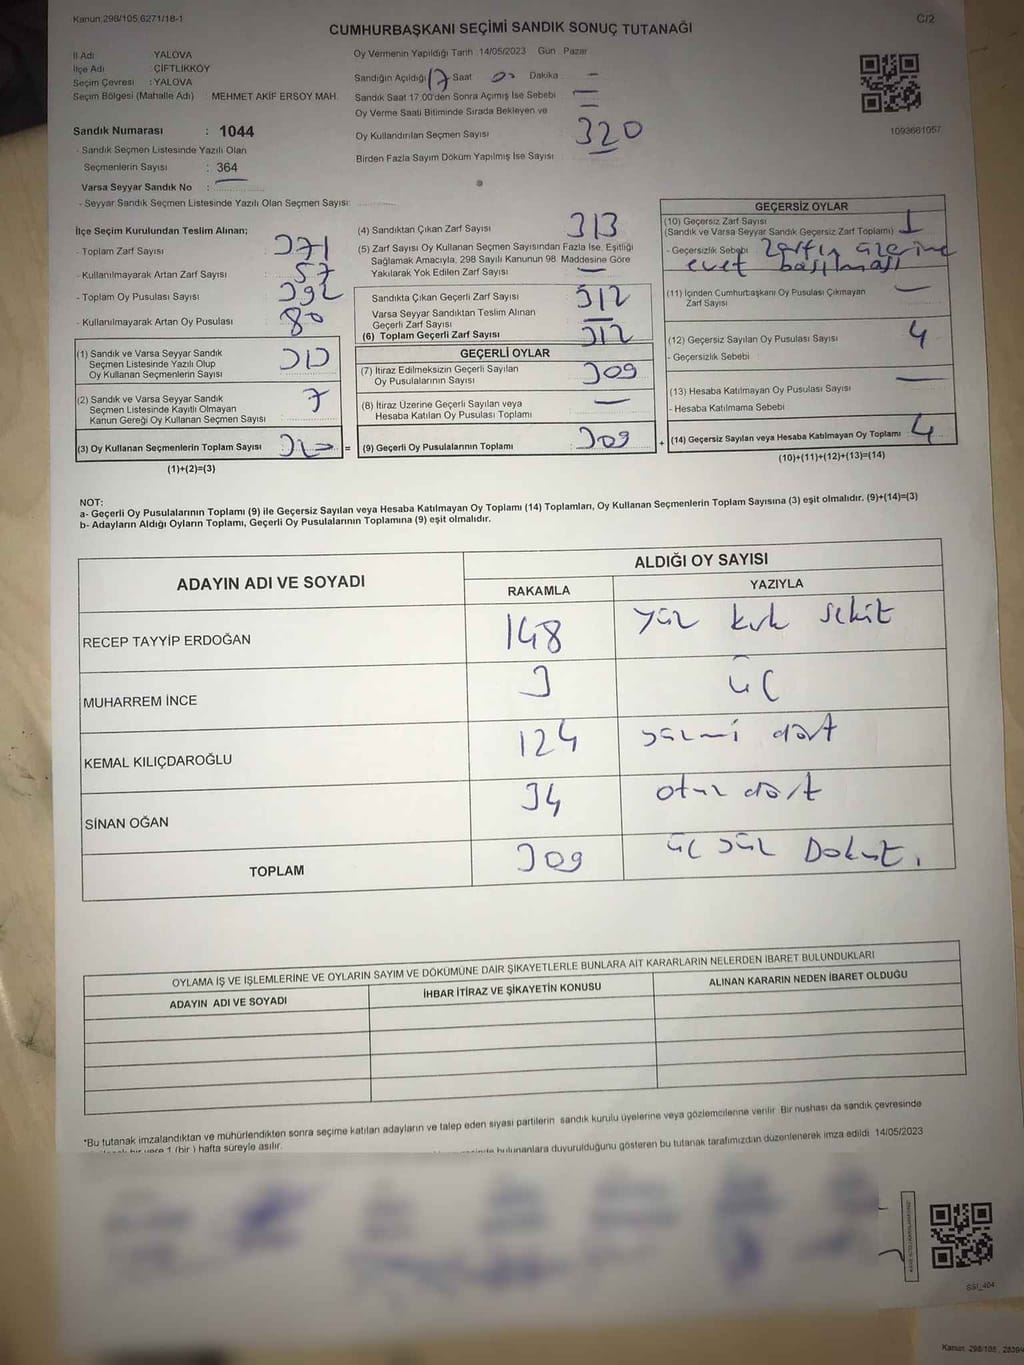 Kanun:298/105,6271/18-1
C/2
CUMHURBAŞKANI SEÇİMİ SANDIK SONUÇ TUTANAĞI
İl Adı YALOVA
İlçe Adı ÇİFTLİKKÖY
Seçim Çevresi : YALOVA
Seçim Bölgesi (Mahalle Adı) MEHMET AKİF ERSOY MAH.
Sandık Numarası : 1044
- Sandık Seçmen Listesinde Yazılı Olan
Seçmenlerin Sayısı : 364
Varsa Seyyar Sandık No :
- Seyyar Sandık Seçmen Listesinde Yazılı Olan Seçmen Sayısı:
Oy Vermenin Yapıldığı Tarih 14/05/2023 Gün Pazar
Sandığın Açıldığı 17 Saat 00 Dakika —
Sandık Saat 17:00'den Sonra Açımış İse Sebebi —
Oy Verme Saati Bitiminde Sırada Bekleyen ve —
Oy Kullandırılan Seçmen Sayısı 320
Birden Fazla Sayım Döküm Yapılmış İse Sayısı —
1093661057
İlçe Seçim Kurulundan Teslim Alınan;
- Toplam Zarf Sayısı 371
- Kullanılmayarak Artan Zarf Sayısı 57
- Toplam Oy Pusulası Sayısı 392
- Kullanılmayarak Artan Oy Pusulası 80
(1) Sandık ve Varsa Seyyar Sandık
Seçmen Listesinde Yazılı Olup
Oy Kullanan Seçmenlerin Sayısı 313
(2) Sandık ve Varsa Seyyar Sandık
Seçmen Listesinde Kayıtlı Olmayan
Kanun Gereği Oy Kullanan Seçmen Sayısı 7
(3) Oy Kullanan Seçmenlerin Toplam Sayısı 320 =
(1)+(2)=(3)
(4) Sandıktan Çıkan Zarf Sayısı 313
(5) Zarf Sayısı Oy Kullanan Seçmen Sayısından Fazla İse, Eşitliği
Sağlamak Amacıyla, 298 Sayılı Kanunun 98. Maddesine Göre
Yakılarak Yok Edilen Zarf Sayısı —
Sandıkta Çıkan Geçerli Zarf Sayısı 312
Varsa Seyyar Sandıktan Teslim Alınan
Geçerli Zarf Sayısı —
(6) Toplam Geçerli Zarf Sayısı 312
GEÇERLİ OYLAR
(7) İtiraz Edilmeksizin Geçerli Sayılan
Oy Pusulalarının Sayısı 309
(8) İtiraz Üzerine Geçerli Sayılan veya
Hesaba Katılan Oy Pusulası Toplamı —
(9) Geçerli Oy Pusulalarının Toplamı 309 +
GEÇERSİZ OYLAR
(10) Geçersiz Zarf Sayısı
(Sandık ve Varsa Seyyar Sandık Geçersiz Zarf Toplamı) 1
- Geçersizlik Sebebi Zarfın üzerine
evet basılması
(11) İçinden Cumhurbaşkanı Oy Pusulası Çıkmayan
Zarf Sayısı —
(12) Geçersiz Sayılan Oy Pusulası Sayısı 4
- Geçersizlik Sebebi
(13) Hesaba Katılmayan Oy Pusulası Sayısı —
- Hesaba Katılmama Sebebi
(14) Geçersiz Sayılan veya Hesaba Katılmayan Oy Toplamı 4
(10)+(11)+(12)+(13)=(14)
NOT:
a- Geçerli Oy Pusulalarının Toplamı (9) ile Geçersiz Sayılan veya Hesaba Katılmayan Oy Toplamı (14) Toplamları, Oy Kullanan Seçmenlerin Toplam Sayısına (3) eşit olmalıdır. (9)+(14)=(3)
b- Adayların Aldığı Oyların Toplamı, Geçerli Oy Pusulalarının Toplamına (9) eşit olmalıdır.
ADAYIN ADI VE SOYADI
ALDIĞI OY SAYISI
RAKAMLA YAZIYLA
RECEP TAYYİP ERDOĞAN 148 yüz kırk sekiz
MUHARREM İNCE 3 üç
KEMAL KILIÇDAROĞLU 124 dört
SİNAN OĞAN 34 otuz dört
TOPLAM 309 üç yüz Dokuz.
OYLAMA İŞ VE İŞLEMLERİNE VE OYLARIN SAYIM VE DÖKÜMÜNE DAİR ŞİKAYETLERLE BUNLARA AİT KARARLARIN NELERDEN İBARET BULUNDUKLARI
ADAYIN ADI VE SOYADI İHBAR İTİRAZ VE ŞİKAYETİN KONUSU ALINAN KARARIN NEDEN İBARET OLDUĞU
*Bu tutanak imzalandıktan ve mühürlendikten sonra seçime katılan adayların ve talep eden siyasi partilerin sandık kurulu üyelerine veya gözlemcilerine verilir. Bir nushası da sandık çevresinde
bir yere 1 (bir) hafta süreyle asılır. bulunanlara duyurulduğunu gösteren bu tutanak tarafımızdan düzenlenerek imza edildi 14/05/2023
SSI_404
Kanun: 298/105